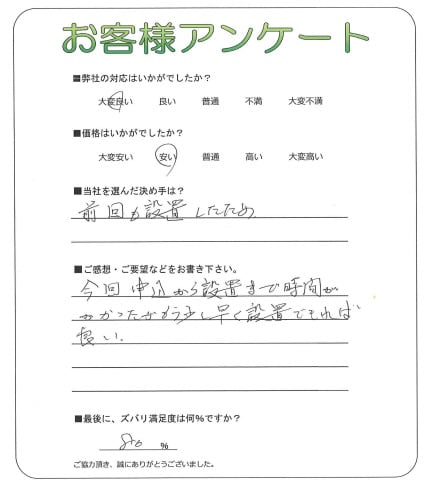 お客様アンケート
■弊社の対応はいかがでしたか？
大変良い 良い 普通 不満 大変不満
■価格はいかがでしたか？
大変安い 安い 普通 高い 大変高い
■当社を選んだ決め手は？
前回も設置したため
■ご感想・ご要望などをお書き下さい。
今回申込から設置まで時間が
かかったがもう少し早く設置できれば
良い．
■最後に、ズバリ満足度は何%ですか？
80 %
ご協力頂き、誠にありがとうございました。